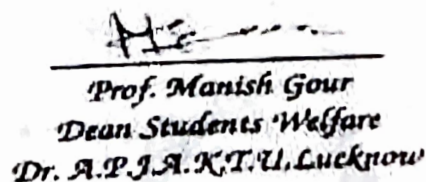 Prof. Manish Gour
Dean Students Welfare
Dr. A.P.J.A.K.T.U. Lucknow